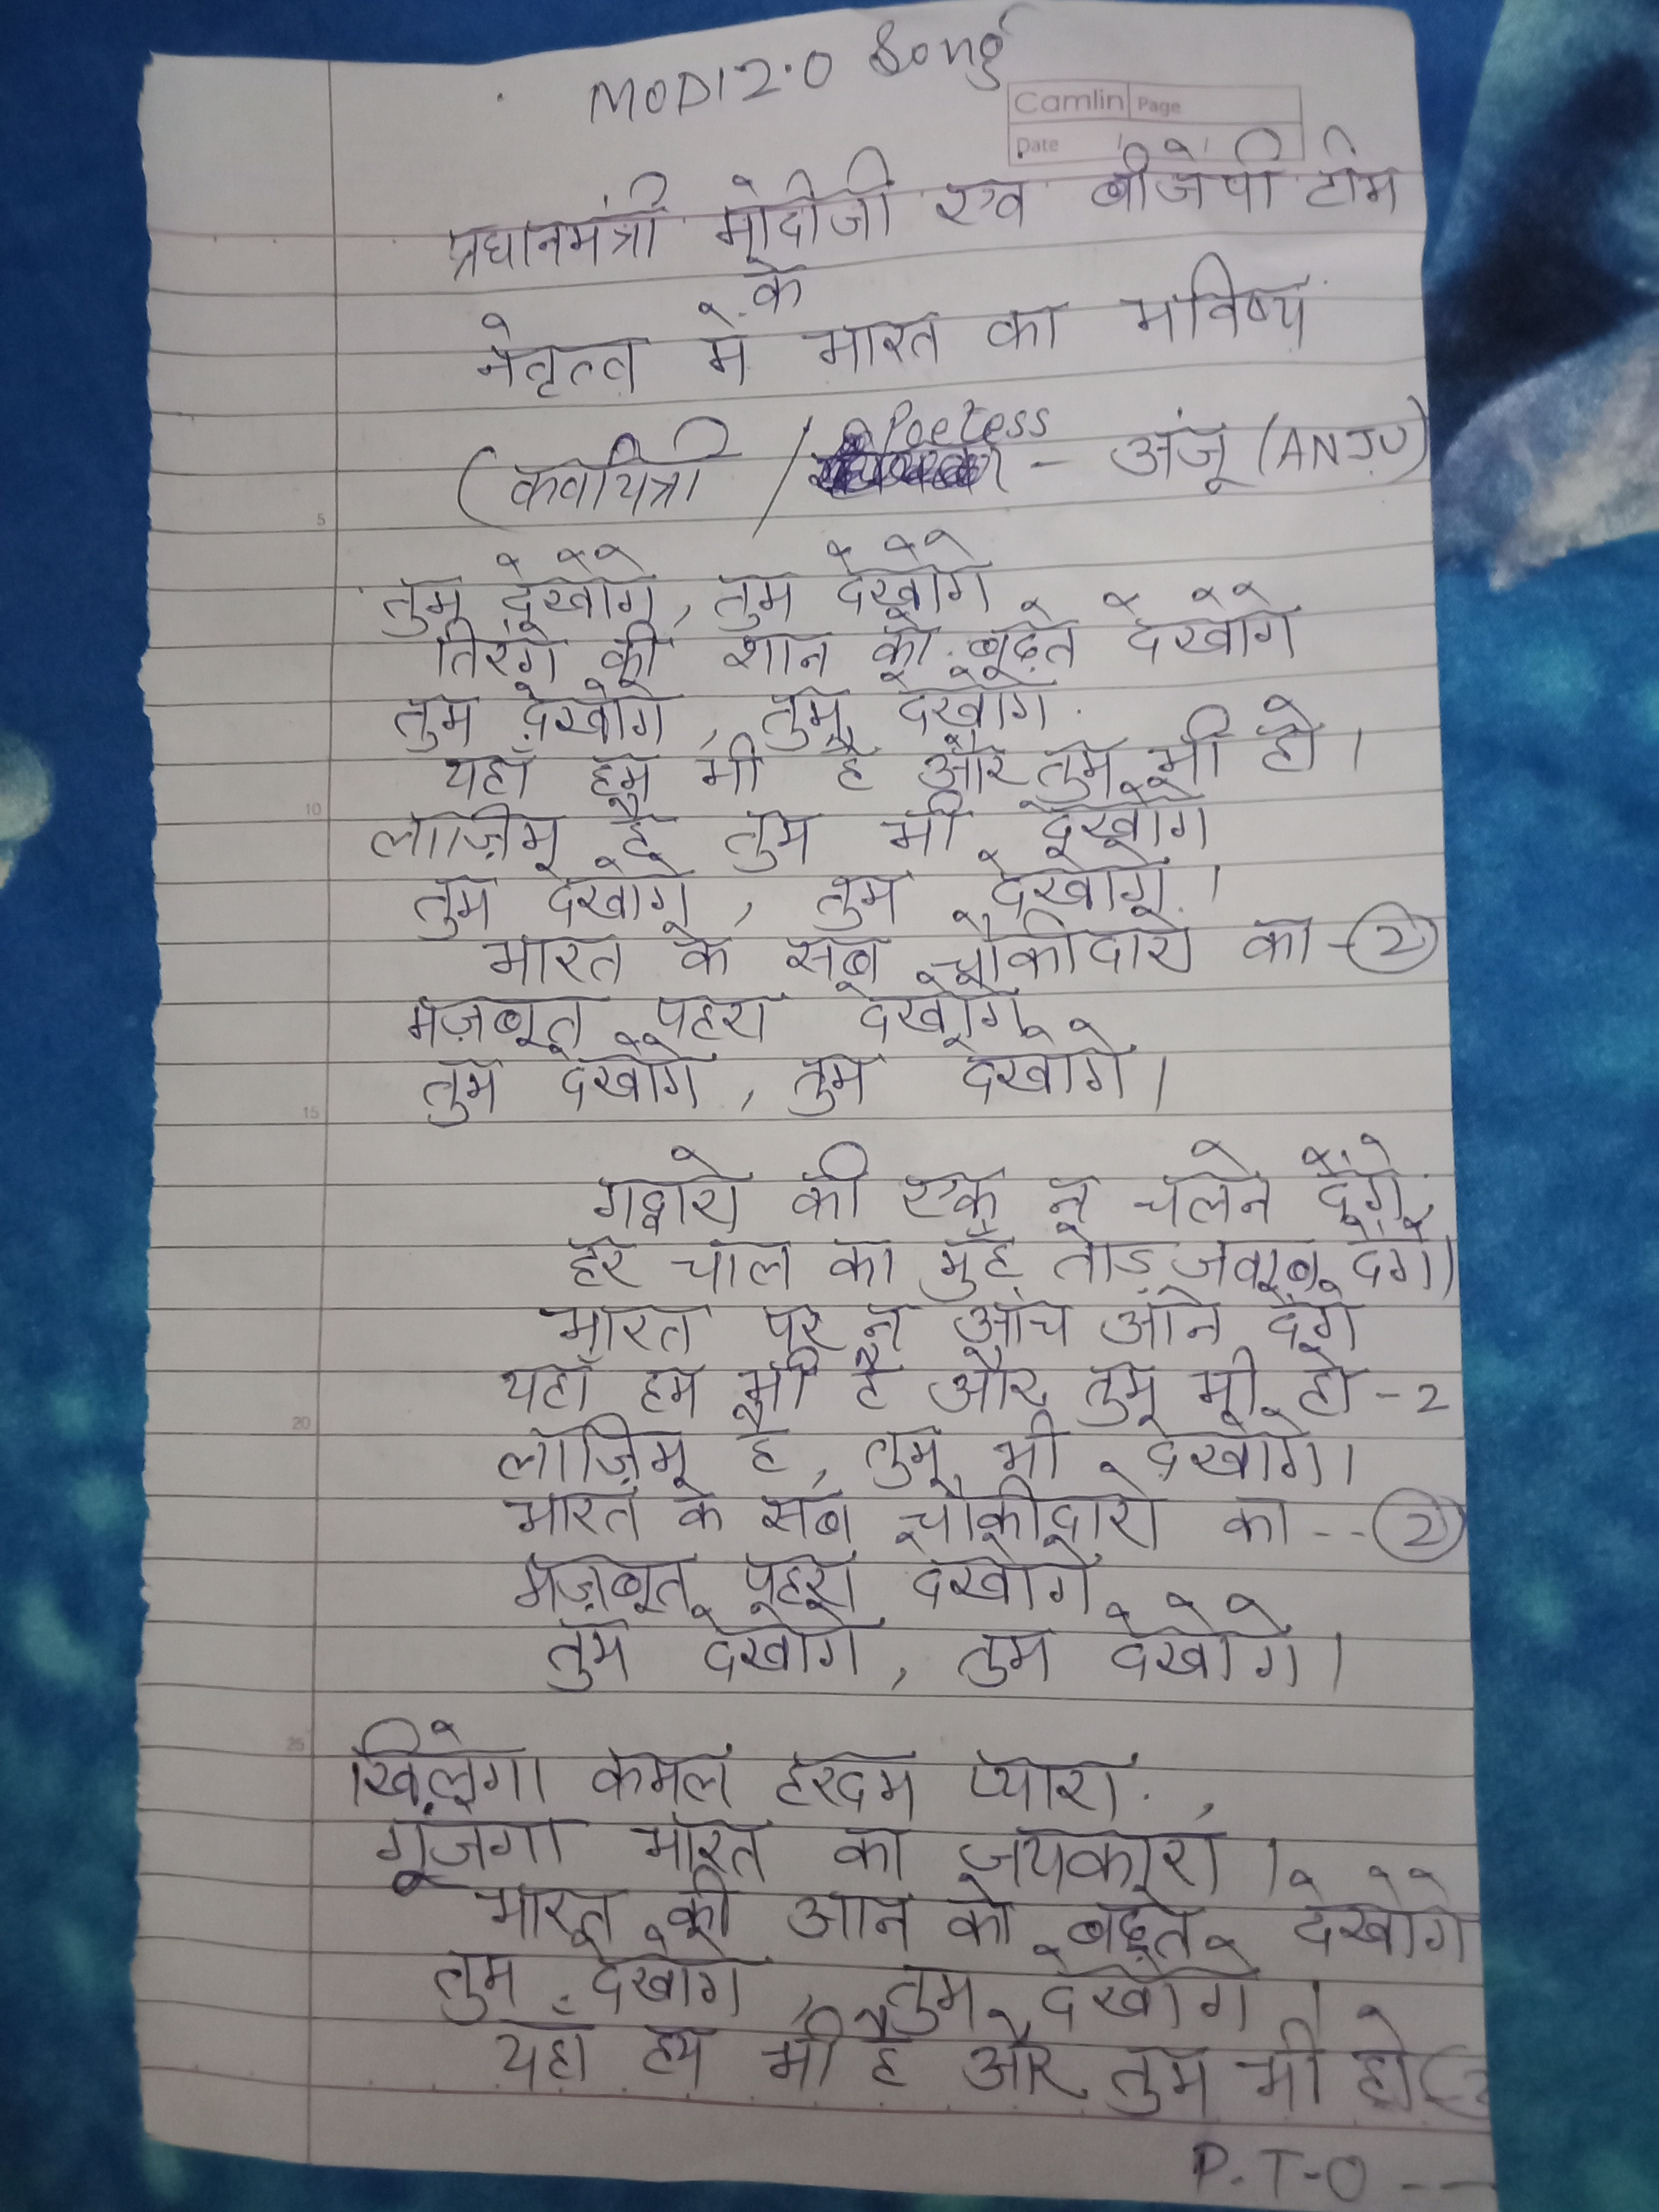 MODI 2.0 Song
Camlin Page
Date
प्रधानमंत्री मोदीजी एव बीजेपी टीम
के
नेतृत्व में भारत का भविष्य
(कवयित्री / Poetess - अंजू (ANJU)
5
तुम देखोगे, तुम देखोगे
तिरंगे की शान को बढ़ते देखोगे
तुम देखोगे, तुम देखोगे
यहाँ हम भी है और तुम भी हो।
10
लाज़िम है तुम भी देखोगे
तुम देखोगे, तुम देखोगे।
भारत के सब चौकीदारो का - 2
मज़बूत पहरा देखोगे
तुम देखोगे, तुम देखोगे।
15
गद्दारो की एक न चलने देंगे,
हर चाल का मुँह तोड़ जवाब देंगे।
भारत पर न आंच आने देंगे
यहाँ हम भी है और तुम भी हो - 2
20
लाज़िम है, तुम भी देखोगे।
भारत के सब चौकीदारो का -- 2
मज़बूत पहरा देखोगे
तुम देखोगे, तुम देखोगे।
25
खिलेगा कमल हरदम प्यारा,
गूंजेगा भारत का जयकारा।
भारत की आन को बढ़ते देखोगे
तुम देखोगे, तुम देखोगे।
यहाँ हम भी है और तुम भी हो (2
P.T-O --